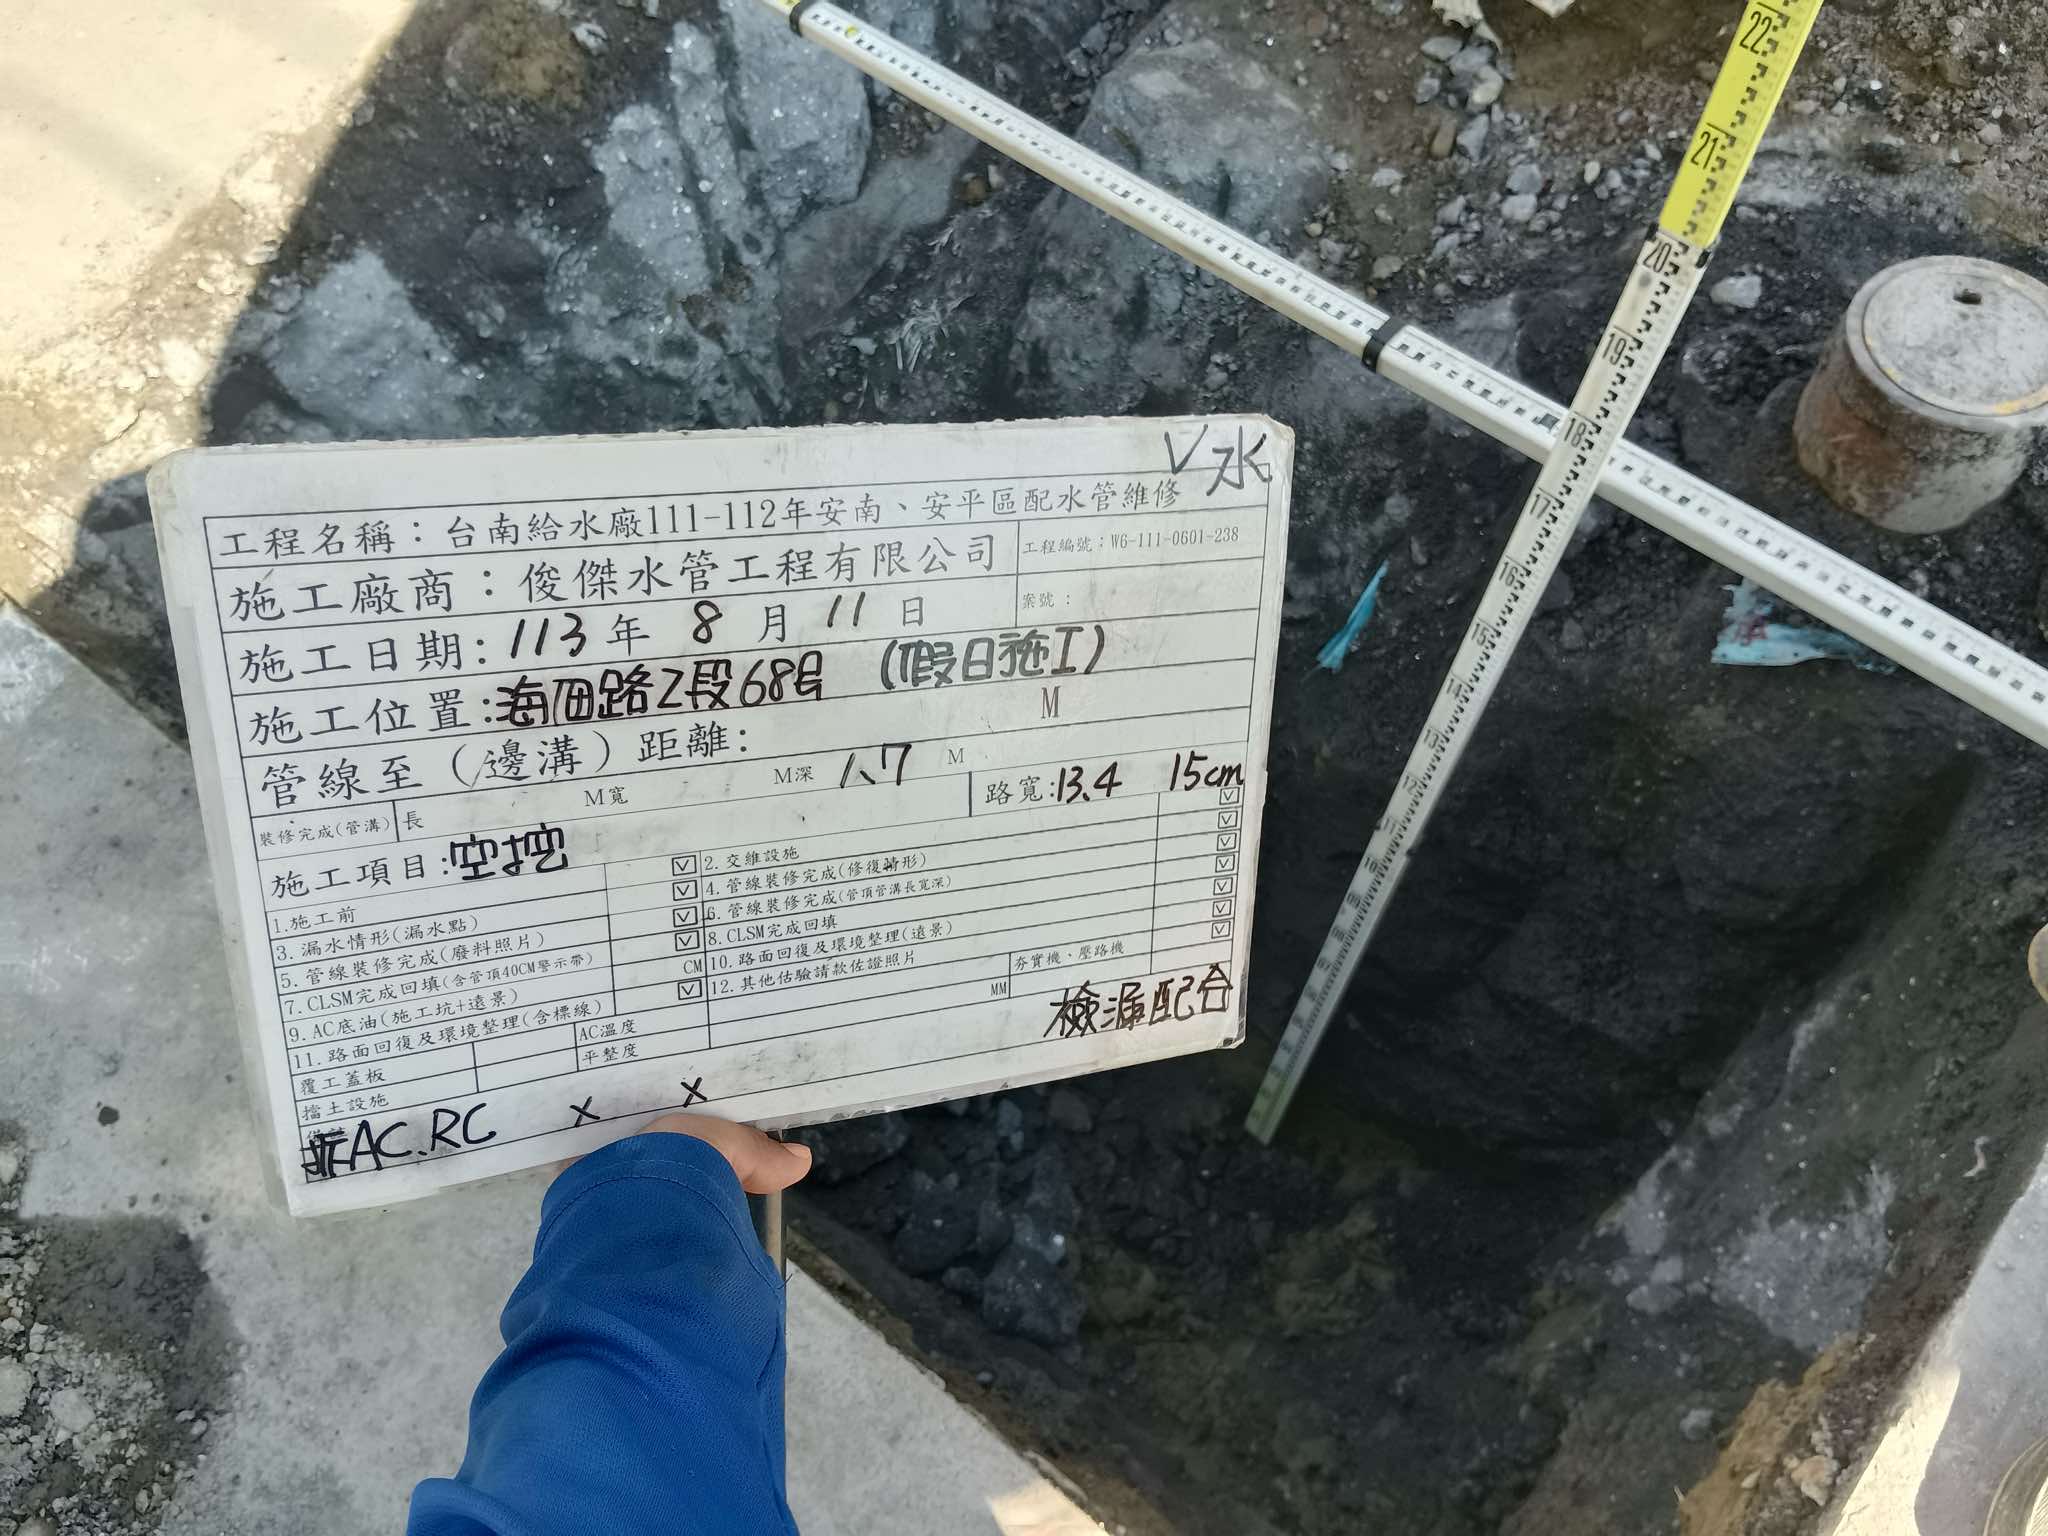 V 水
工程名稱：台南給水廠111-112年安南、安平區配水管維修
施工廠商：俊傑水管工程有限公司
工程編號：W6-111-0601-238
案號：
施工日期：113年 8 月 11 日
施工位置：海佃路2段68号 (假日施工)
管線至（邊溝）距離： M
裝修完成(管溝) 長 M寬 M深 1.7 M
路寬：13.4 15cm
施工項目：空挖
1.施工前 ☑
2.交維設施 ☑
3.漏水情形(漏水點) ☑
4.管線裝修完成(修復情形) ☑
5.管線裝修完成(廢料照片) ☑
6.管線裝修完成(管頂管溝長寬深) ☑
7.CLSM完成回填(含管頂40CM警示帶) ☑
8.CLSM完成回填 ☑
9.AC底油(施工坑+遠景) CM
10.路面回復及環境整理(遠景) ☑
11.路面回復及環境整理(含標線) ☑
12.其他估驗請款佐證照片 ☑
夯實機、壓路機 ☑
覆工蓋板
AC溫度 MM
擋土設施
平整度
檢漏配合
AC.RC x x
22
21
20
19
18
17
16
15
14
13
12
11
10